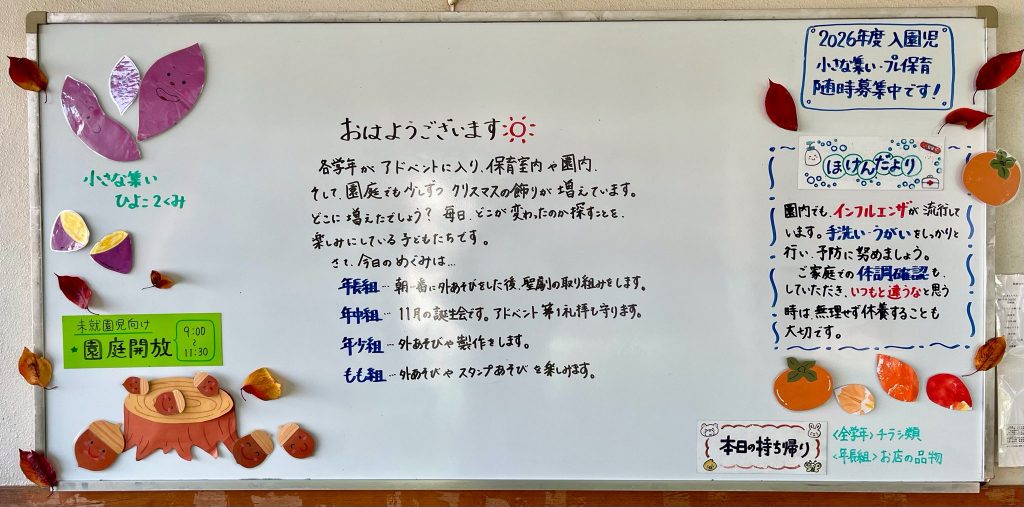 小さな集い
ひよこ2くみ
未就園児向け
★園庭開放
9:00
~
11:30
おはようございます
各学年が、アドベントに入り、保育室内や園内、
そして、園庭でも少しずつクリスマスの飾りが増えています。
どこに増えたでしょう？毎日、どこが変わったのか探すことを、
楽しみにしている子どもたちです。
さて、今日のめぐみは…
年長組…朝一番に外あそびをした後、聖劇の取り組みをします。
年中組…11月の誕生会です。アドベント第1礼拝も守ります。
年少組…外あそびや製作をします。
もも組…外あそびやスタンプあそびを楽しみます。
2026年度入園児
小さな集い・プレ保育
随時募集中です！
ほけんだより
園内でも、インフルエンザが流行して
います。手洗い・うがいをしっかりと
行い、予防に努めましょう。
ご家庭での体調確認も、
していただき、いつもと違うなと思う
時は、無理せず休養することも
大切です。
本日の持ち帰り
〈全学年〉チラシ類
〈年長組〉お店の品物